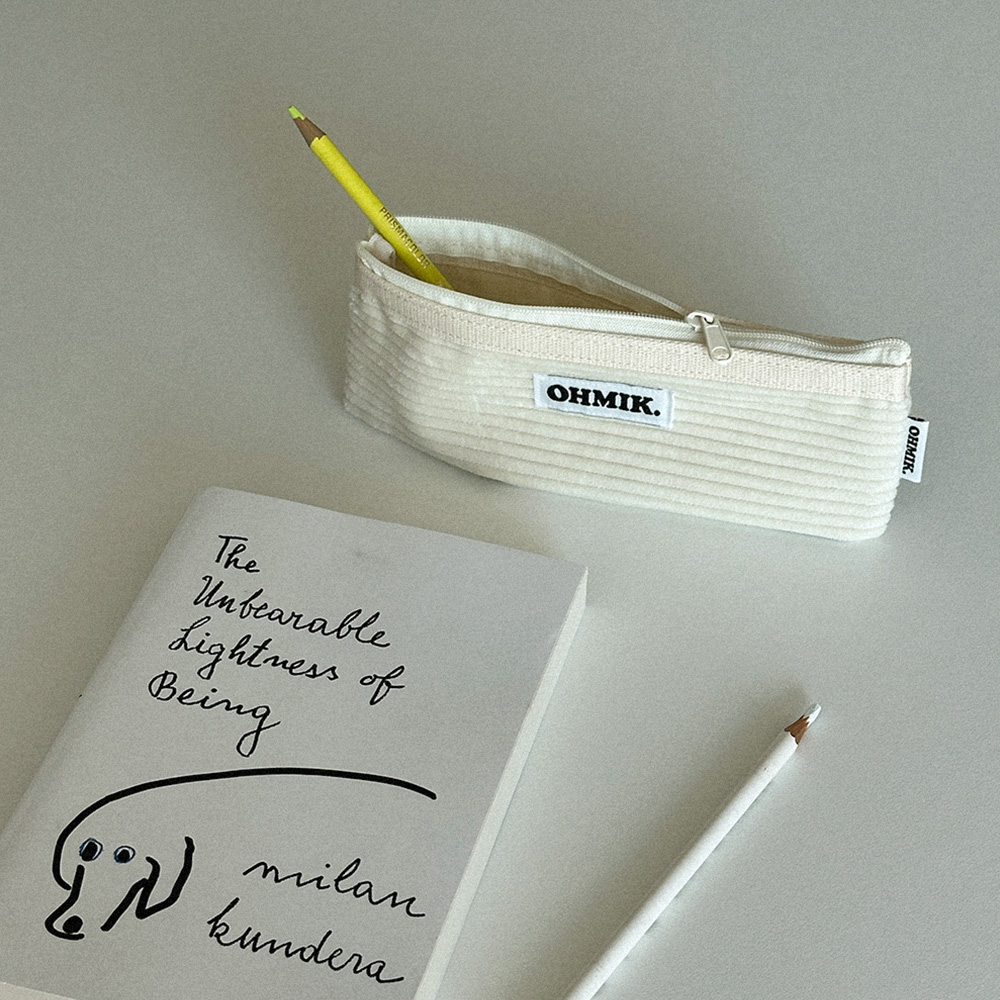 PRISMACOLOR
OHMIK.
OHMIK.
The
Unbearable
Lightness of
Being
milan
kundera